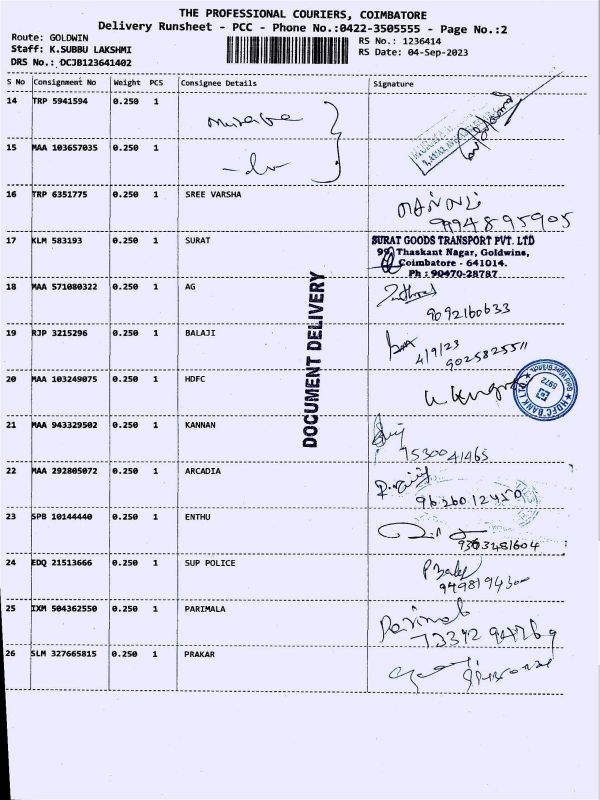 THE PROFESSIONAL COURIERS, COIMBATORE
Delivery Runsheet - PCC - Phone No.:0422-3505555 - Page No.:2
Route: GOLDWIN
RS No.: 1236414
Staff: K.SUBBU LAKSHMI
RS Date: 04-Sep-2023
DRS No.: DCJB123641402
S No Consignment No Weight PCS Consignee Details Signature
14 TRP 5941594 0.250 1
15 MAA 103657035 0.250 1
16 TRP 6351775 0.250 1 SREE VARSHA
9994895905
17 KLM 583193 0.250 1 SURAT
SURAT GOODS TRANSPORT PVT. LTD
99, Thaskant Nagar, Goldwins,
Coimbatore - 641014.
Ph : 90470-28787
18 MAA 571080322 0.250 1 AG
9092160633
19 RJP 3215296 0.250 1 BALAJI
4/9/23
9025825511
20 MAA 103249075 0.250 1 HDFC
HDFC BANK LTD
5972
21 MAA 943329502 0.250 1 KANNAN
7530041465
22 MAA 292805072 0.250 1 ARCADIA
9626012450
23 SPB 10144440 0.250 1 ENTHU
9363281604
24 EDQ 21513666 0.250 1 SUP POLICE
9498194300
25 IXM 504362550 0.250 1 PARIMALA
Parimala
26 SLM 327665815 0.250 1 PRAKAR
DOCUMENT DELIVERY